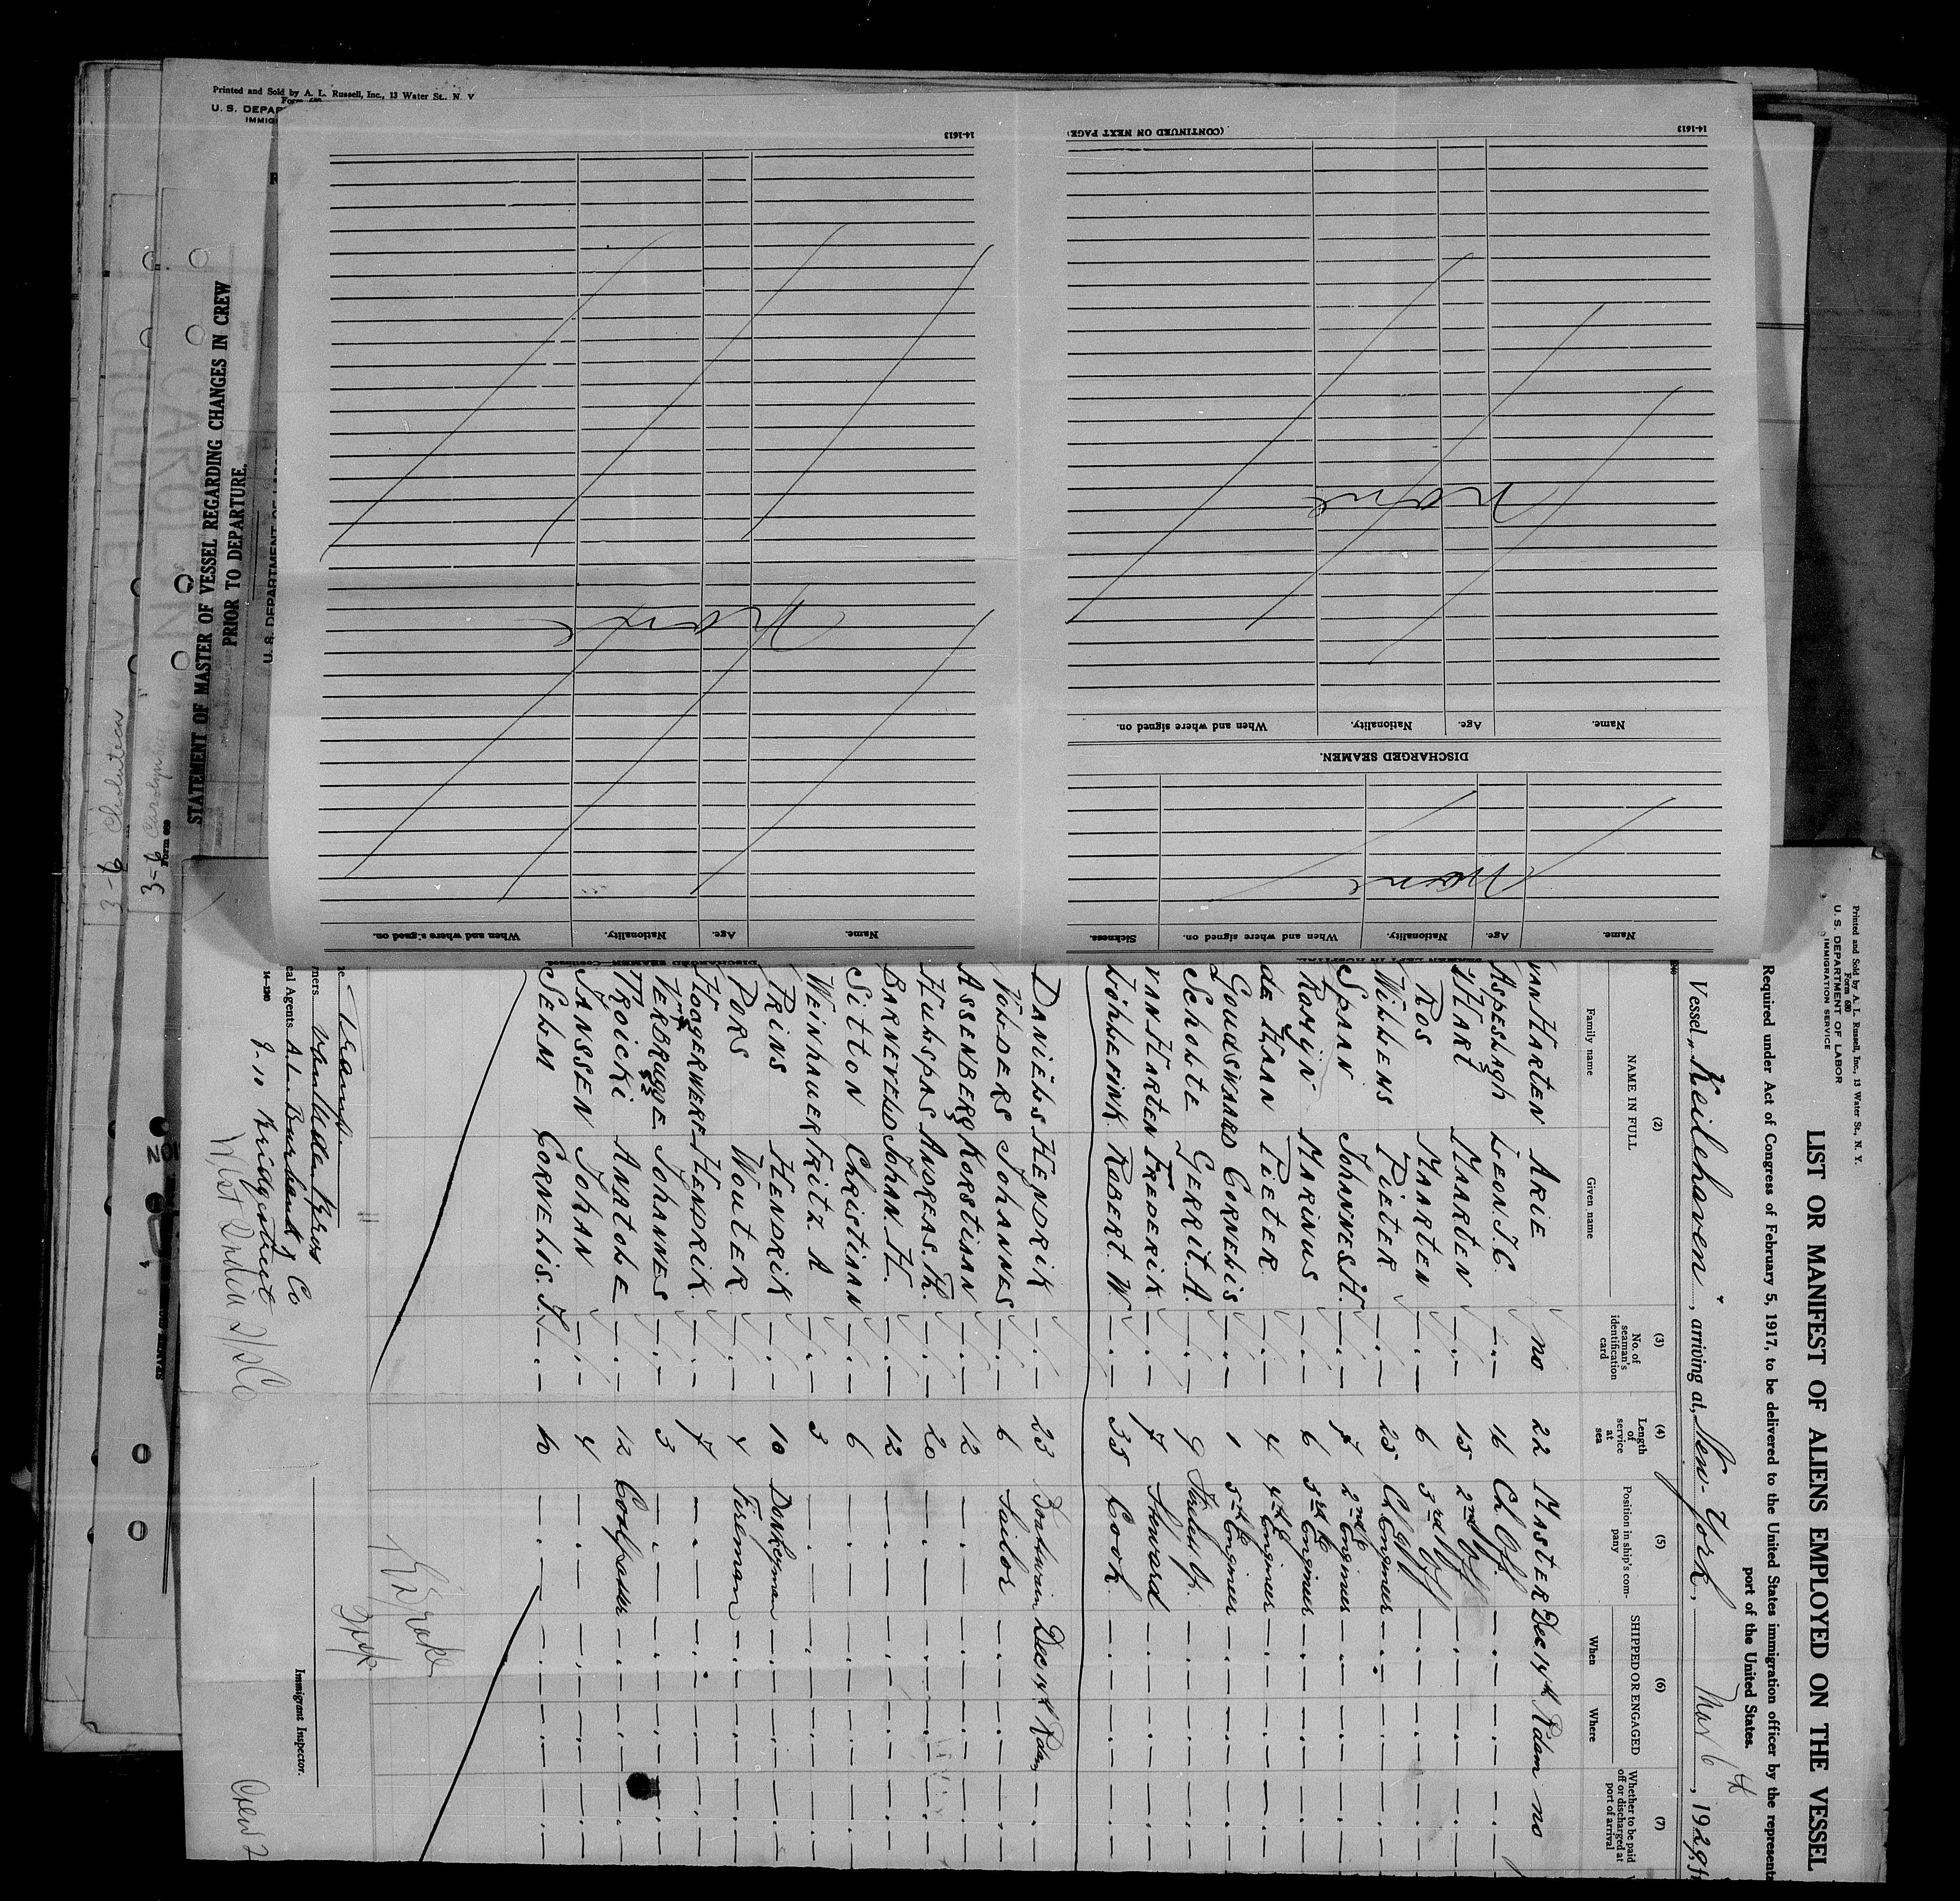 Printed and Sold by A. L. Russell, Inc., 13 Water St., N. Y.
Form 680
U. S. DEPARTMENT OF LABOR
IMMIGRATION SERVICE
LIST OR MANIFEST OF ALIENS EMPLOYED ON THE VESSEL
Required under Act of Congress of February 5, 1917, to be delivered to the United States immigration officer by the represent
port of the United States.
Vessel „Keilehaven", arriving at, New-York, Mar 6th, 1929,
(2) (3) (4) (5) (6) (7)
NAME IN FULL
Family name Given name
No. of seaman's identification card
Length of service at sea
Position in ship's company
SHIPPED OR ENGAGED
When Where
Whether to be paid off or discharged at port of arrival
van Harten Arie no 22 Master Dec 14th Rdam no
Aspeslagh Leon. J.C. — 16 Ch Off. — — —
't Hart Maarten — 15 2nd Off — — —
Ros Maarten — 6 3rd Off — — —
Willens Pieter — 25 Ch Engineer — — —
Spaan Johannes H. — 7 2nd Engineer — — —
Romijn Marinus — 6 3rd Engineer — — —
de Haan Pieter — 4 4th Engineer — — —
Goudswaard Cornelis — 1 5th Engineer — — —
Scholte Gerrit. A. — 9 — — —
van Harten Frederik — 7 Steward — — —
Löhlefink Robert. W. — 35 Cook — — —
Daniëls Hendrik — 23 Boatswain Dec 14th Rdam —
Polders Johannes — 6 Sailor — — —
Assenberg Korstiaan — 12 — — — —
Hulspas Andreas. Th. — 20 — — — —
Barneveld Johan. H. — 12 — — — —
Sitton Christiaan — 6 — — — —
Weinhauer Fritz A — 3 — — — —
Prins Hendrik — 10 Donkeyman — — —
Pors Wouter — 4 Fireman — — —
Hoogerwerf Hendrik — 7 — — — —
Verbrugge Johannes — 3 — — — —
Troicki Anatole — 12 Coalpasser — — —
Janssen Johan — 4 — — — —
Selm Cornelis. J. — 10 — — — —
Tramp
van Uden Bros
cal Agents A. L. Burbank & Co
9-10 Bridgestreet
West India S/S Co
14-1240
Immigrant Inspector.
Crew 2
Printed and Sold by A. L. Russell, Inc., 13 Water St., N. Y
Form 689
U. S. DEPAR
IMMIG
STATEMENT OF MASTER OF VESSEL REGARDING CHANGES IN CREW
PRIOR TO DEPARTURE.
U. S. DEPARTMENT OF LABOR
3-6 Carolynian
3-6 Chaluteau
Name. Age. Nationality. When and where signed on. Sickness.
None
DISCHARGED SEAMEN.
Name. Age. Nationality. When and where signed on.
None
14-1613 (CONTINUED ON NEXT PAGE)
DISCHARGED SEAMEN—Continued.
Name. Age. Nationality. When and where signed on.
None
14-1613